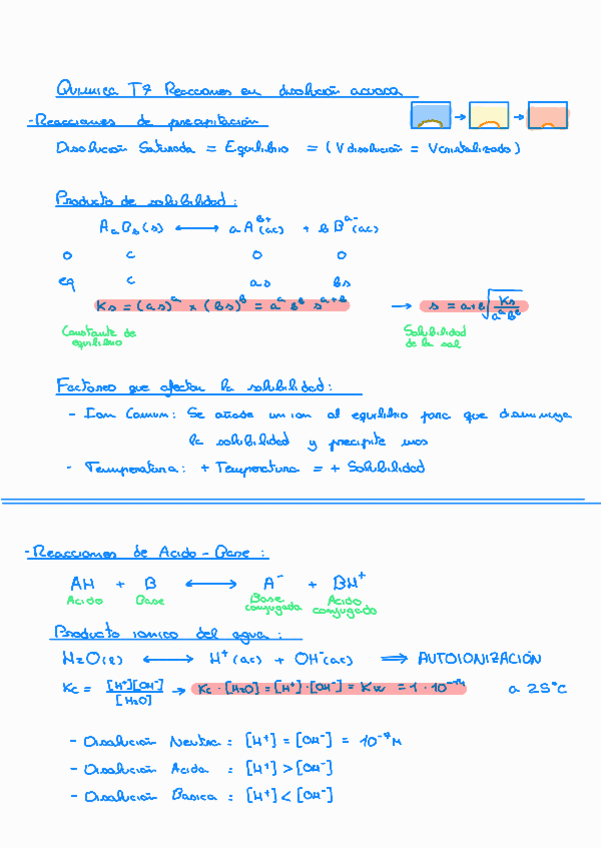 Química T7 Reacciones en disolución acuosa
- Reacciones de precipitación
Disolución Saturada = Equilibrio = (Vdisolución = Vcristalizado)
Producto de solubilidad:
AₐBᵦ(s) ⟷ a Aᵇ⁺(ac) + b Bᵃ⁻(ac)
0 c 0 0
eq c as bs
Ks = (as)ᵃ × (bs)ᵇ = aᵃ bᵇ sᵃ⁺ᵇ → s = ᵃ⁺ᵇ√(Ks / aᵃbᵇ)
Constante de equilibrio
Solubilidad de la sal
Factores que afectan la solubilidad:
- Ion Comun: Se añade un ion al equilibrio para que disminuya
la solubilidad y precipite mas
- Temperatura: + Temperatura = + Solubilidad
- Reacciones de Acido - Base:
AH + B ⟷ A⁻ + BH⁺
Acido Base Base conjugada Acido conjugado
Producto ionico del agua:
H₂O(l) ⟷ H⁺(ac) + OH⁻(ac) ⟹ AUTOIONIZACIÓN
Kc = [H⁺][OH⁻] / [H₂O] → Kc · [H₂O] = [H⁺] · [OH⁻] = Kw = 1 · 10⁻¹⁴ a 25°C
- Disolución Neutra: [H⁺] = [OH⁻] = 10⁻⁷ M
- Disolución Acida: [H⁺] > [OH⁻]
- Disolución Basica: [H⁺] < [OH⁻]